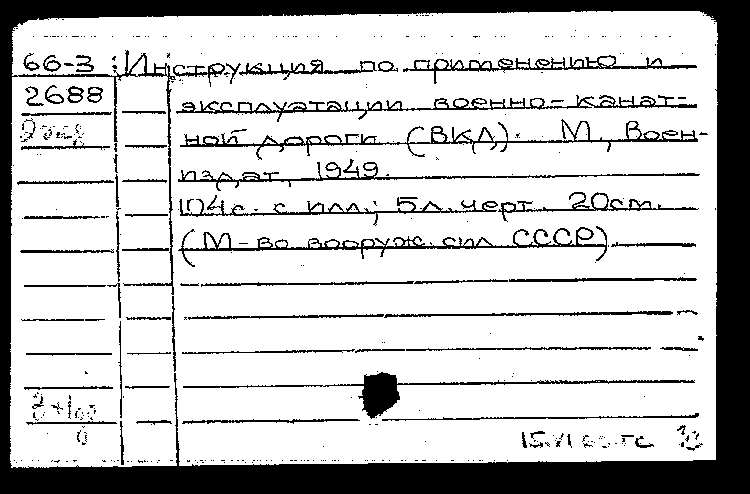 66-3 Инструкция по применению и
2688 эксплуатации военно-канат-
ной дороги (ВКД). М., Воен-
издат, 1949.
104с. с илл.; 5л. черт. 20см.
(М-во вооруж. сил СССР).
15.VI